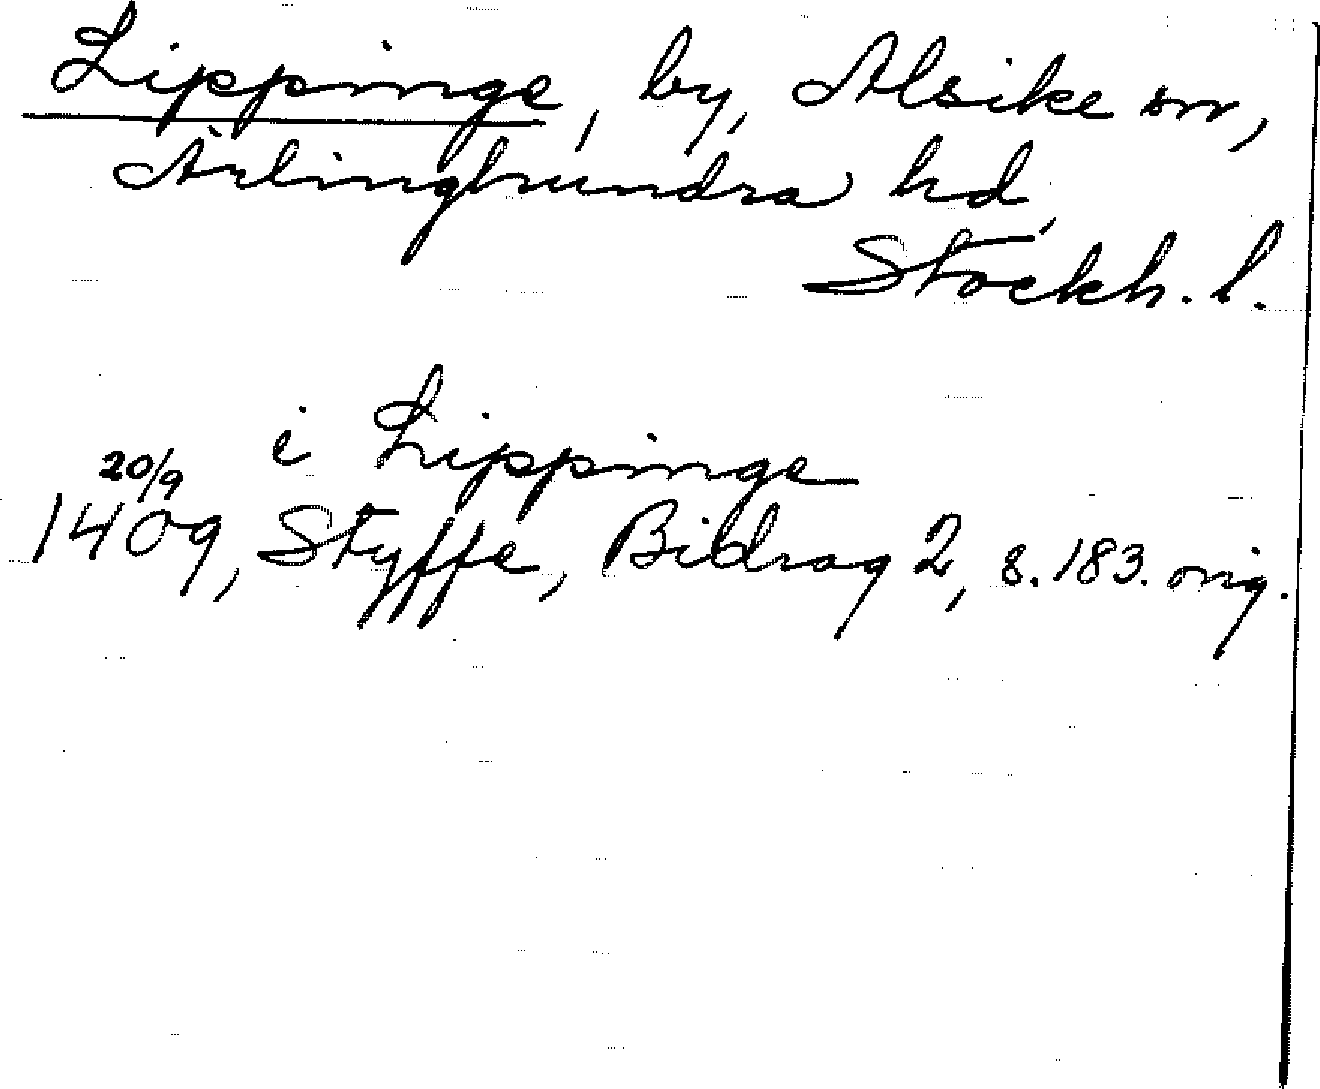 Lippinge, by, Alsike sn,
Ärlinghundra hd,
Stockh. l.
i Lippinge
20/9
1409, Styffe, Bidrag 2, s. 183. orig.